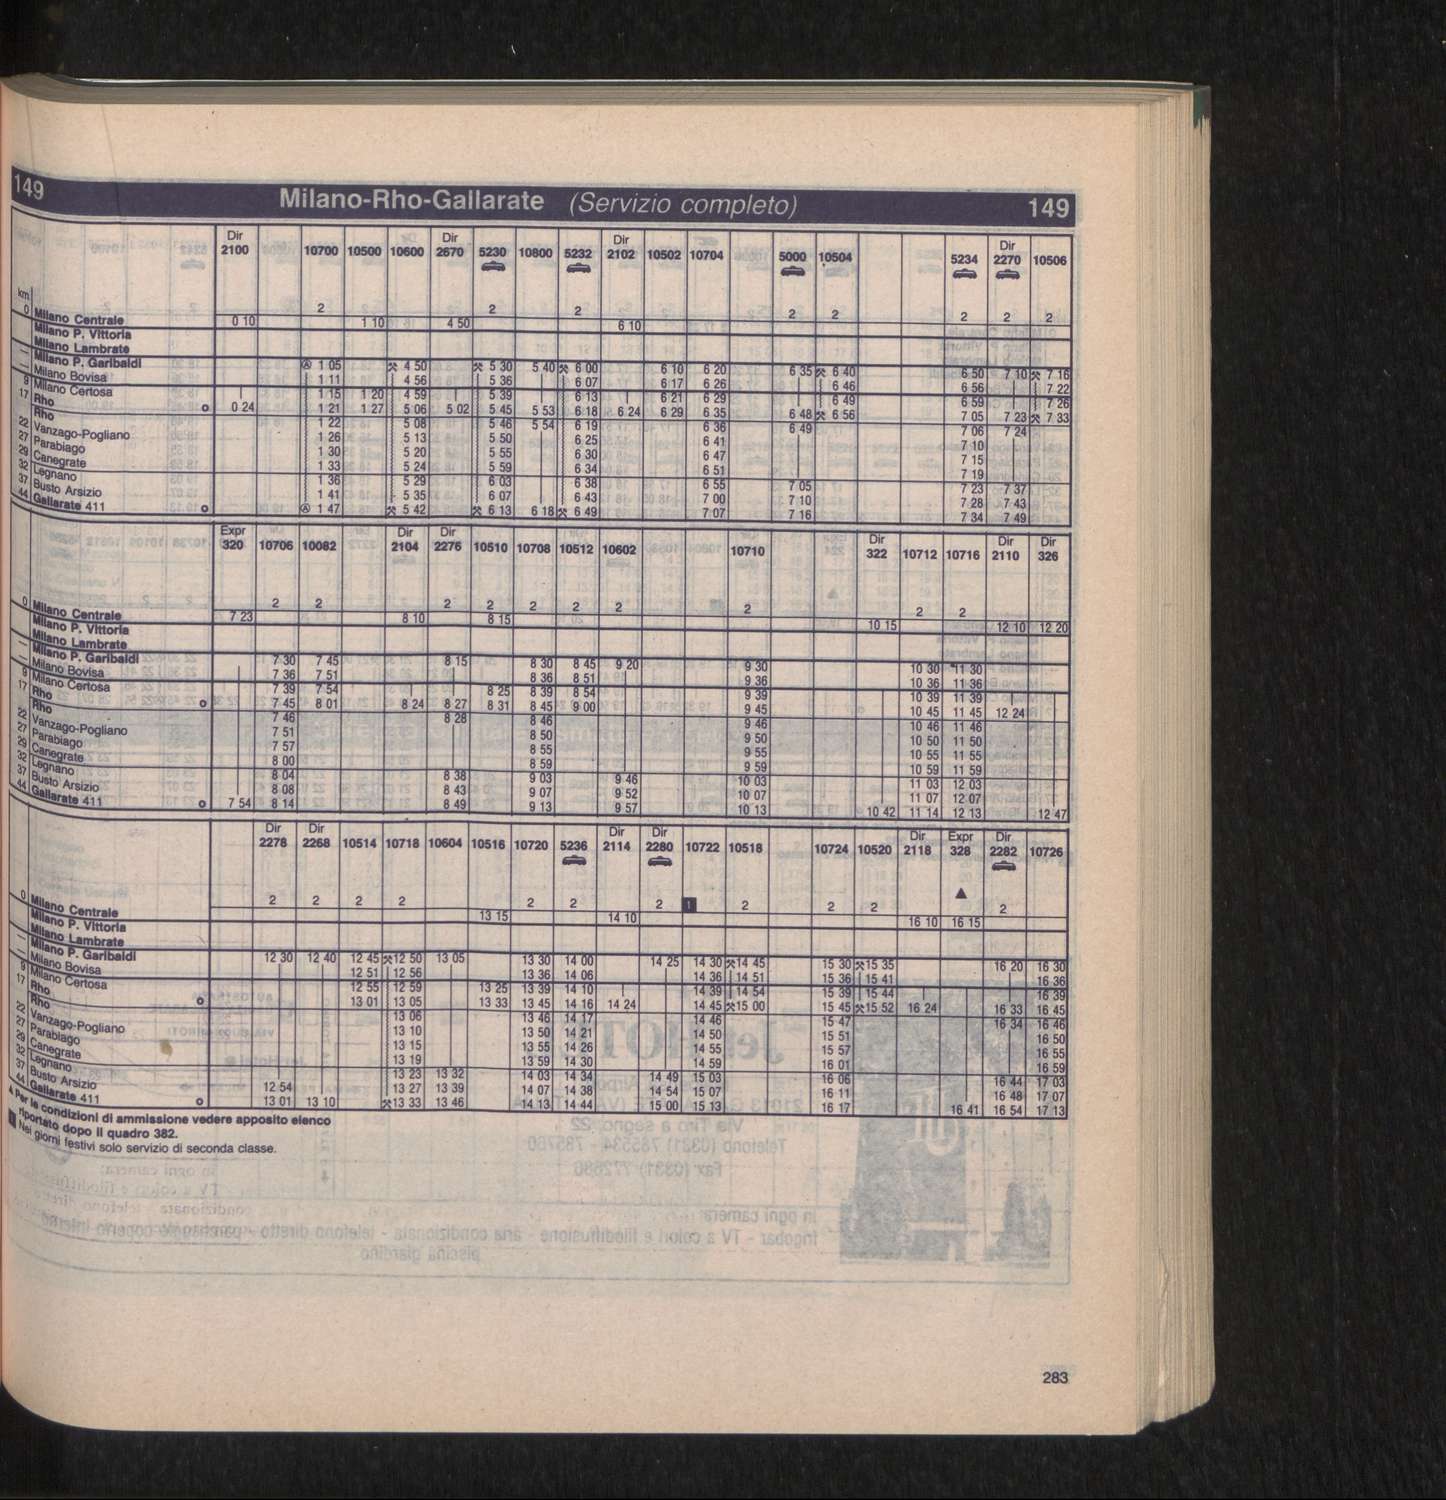 149 Milano-Rho-Gallarate (Servizio completo) 149
Dir 2100 10700 10500 10600 Dir 2670 5230 10800 5232 Dir 2102 10502 10704 5000 10504 5234 Dir 2270 10506
km 2 2 2 2 2 2 2 2
0 Milano Centrale 0 10 1 10 4 50 6 10
Milano P. Vittoria
Milano Lambrate
— Milano P. Garibaldi 1 05 4 50 5 30 5 40 6 00 6 10 6 20 6 35 6 40 6 50 7 10 7 16
Milano Bovisa 1 11 4 56 5 36 6 07 6 17 6 26 6 46 6 56 7 22
9 Milano Certosa 1 15 1 20 4 59 5 39 6 13 6 21 6 29 6 49 6 59 7 26
17 Rho o 0 24 1 21 1 27 5 06 5 02 5 45 5 53 6 18 6 24 6 29 6 35 6 48 6 56 7 05 7 23 7 33
Rho 1 22 5 08 5 46 5 54 6 19 6 36 6 49 7 06 7 24
22 Vanzago-Pogliano 1 26 5 13 5 50 6 25 6 41 7 10
27 Parabiago 1 30 5 20 5 55 6 30 6 47 7 15
29 Canegrate 1 33 5 24 5 59 6 34 6 51 7 19
32 Legnano 1 36 5 29 6 03 6 38 6 55 7 05 7 23 7 37
37 Busto Arsizio 1 41 5 35 6 07 6 43 7 00 7 10 7 28 7 43
44 Gallarate 411 o 1 47 5 42 6 13 6 18 6 49 7 07 7 16 7 34 7 49
Expr 320 10706 10082 Dir 2104 Dir 2276 10510 10708 10512 10602 10710 Dir 322 10712 10716 Dir 2110 Dir 326
2 2 2 2 2 2 2 2 2 2
0 Milano Centrale 7 23 8 10 8 15 10 15 12 10 12 20
Milano P. Vittoria
Milano Lambrate
— Milano P. Garibaldi 7 30 7 45 8 15 8 30 8 45 9 20 9 30 10 30 11 30
Milano Bovisa 7 36 7 51 8 36 8 51 9 36 10 36 11 36
9 Milano Certosa 7 39 7 54 8 25 8 39 8 54 9 39 10 39 11 39
17 Rho o 7 45 8 01 8 24 8 27 8 31 8 45 9 00 9 45 10 45 11 45 12 24
Rho 7 46 8 28 8 46 9 46 10 46 11 46
22 Vanzago-Pogliano 7 51 8 50 9 50 10 50 11 50
27 Parabiago 7 57 8 55 9 55 10 55 11 55
29 Canegrate 8 00 8 59 9 59 10 59 11 59
32 Legnano 8 04 8 38 9 03 9 46 10 03 11 03 12 03
37 Busto Arsizio 8 08 8 43 9 07 9 52 10 07 11 07 12 07
44 Gallarate 411 o 7 54 8 14 8 49 9 13 9 57 10 13 10 42 11 14 12 13 12 47
Dir 2278 Dir 2268 10514 10718 10604 10516 10720 5236 Dir 2114 Dir 2280 10722 10518 10724 10520 Dir 2118 Expr 328 Dir 2282 10726
2 2 2 2 2 2 2 1 2 2 2 ▲ 2
0 Milano Centrale 13 15 14 10 16 10 16 15
Milano P. Vittoria
Milano Lambrate
— Milano P. Garibaldi 12 30 12 40 12 45 12 50 13 05 13 30 14 00 14 25 14 30 14 45 15 30 15 35 16 20 16 30
Milano Bovisa 12 51 12 56 13 36 14 06 14 36 14 51 15 36 15 41 16 36
9 Milano Certosa 12 55 12 59 13 25 13 39 14 10 14 39 14 54 15 39 15 44 16 39
17 Rho o 13 01 13 05 13 33 13 45 14 16 14 24 14 45 15 00 15 45 15 52 16 24 16 33 16 45
Rho 13 06 13 46 14 17 14 46 15 47 16 34 16 46
22 Vanzago-Pogliano 13 10 13 50 14 21 14 50 15 51 16 50
27 Parabiago 13 15 13 55 14 26 14 55 15 57 16 55
29 Canegrate 13 19 13 59 14 30 14 59 16 01 16 59
32 Legnano 13 23 13 32 14 03 14 34 14 49 15 03 16 06 16 44 17 03
37 Busto Arsizio 12 54 13 27 13 39 14 07 14 38 14 54 15 07 16 11 16 48 17 07
44 Gallarate 411 o 13 01 13 10 13 33 13 46 14 13 14 44 15 00 15 13 16 17 16 41 16 54 17 13
▲ Per le condizioni di ammissione vedere apposito elenco
riportato dopo il quadro 382.
Nei giorni festivi solo servizio di seconda classe.
283